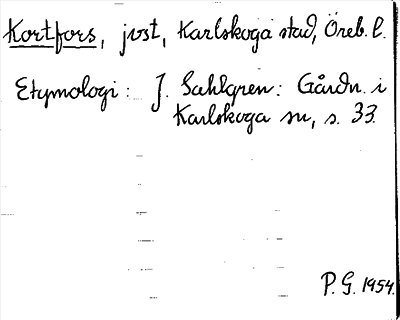 Kortfors, jvst, Karlskoga stad, Öreb. l.
Etymologi: J. Sahlgren: Gårdn. i
Karlskoga sn, s. 33.
P. G. 1954.